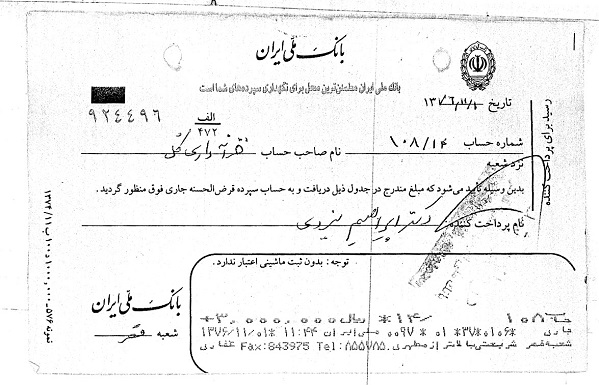 بانک ملی ایران
بانک ملی ایران مطمئن‌ترین محل برای نگهداری سپرده‌های شما است
تاریخ ۱۳۷۶/۱۱/۱
۹۲۴۴۹۶
الف
۴۷۲
شماره حساب ۱۰۸/۱۴ نام صاحب حساب خزانه‌داری کل
نزد شعبه
بدین وسیله تأیید می‌شود که مبلغ مندرج در جدول ذیل دریافت و به حساب سپرده قرض‌الحسنه جاری فوق منظور گردید.
نام پرداخت کننده: دکتر ابراهیم یزدی
رسید برای پرداخت کننده
توجه: بدون ثبت ماشینی اعتبار ندارد.
بانک ملی ایران
شعبه قصر
۱۰۸ ۱۴/* ریال ۳,۰۰۰,۰۰۰*
جاری ۰۱۰۶*۳۷* ۰۱ ۰۰۹۷ ملی ایران ۱۱:۴۴ ۱۳۷۶/۱۱/۰۱
شعبه قصر شریعتی بالاتر از مطهری Tel:۸۵۵۷۸۵ Fax:843975 غفاری